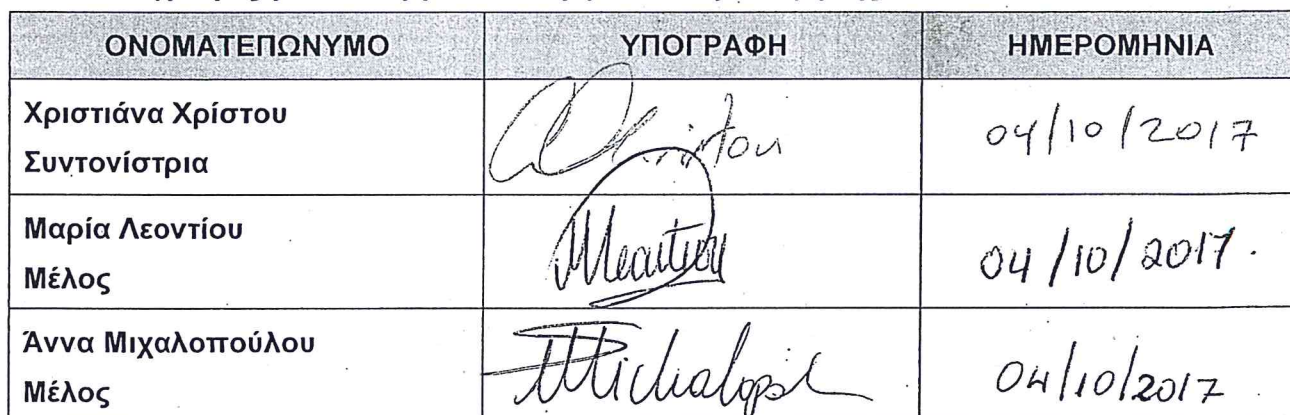 ΟΝΟΜΑΤΕΠΩΝΥΜΟ ΥΠΟΓΡΑΦΗ ΗΜΕΡΟΜΗΝΙΑ
Χριστιάνα Χρίστου
Συντονίστρια
04/10/2017
Μαρία Λεοντίου
Μέλος
04/10/2017.
Άννα Μιχαλοπούλου
Μέλος
04/10/2017